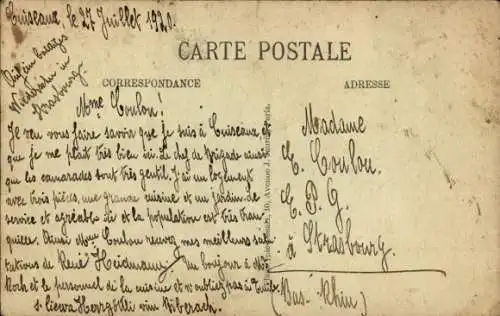 Cuiseaux, le 27 Juillet 1920.
CARTE POSTALE
CORRESPONDANCE
ADRESSE
Mme Coulou!
Je veu vous faire savoir que je suis à Cuiseaux et
que je me plait très bien ici. Le chef de Brigade ainsi
que les camarades sont très gentil. J'ai un logement
avec trois pièces, une grande cuisine et un jardin de
service et agréable ici et la population est très tran
quille. Ainsi Mme Coulou recevez mes meilleurs salu
tations de René Heidmann. Un bonjour à
Koch et le personnel de la cuisine et n'oubliez pas à
s. liewa Herrgöttli vun Biberach.
Strasbourg.
Madame
C. Coulou.
C. P. G.
à Strasbourg.
(Bas-Rhin)